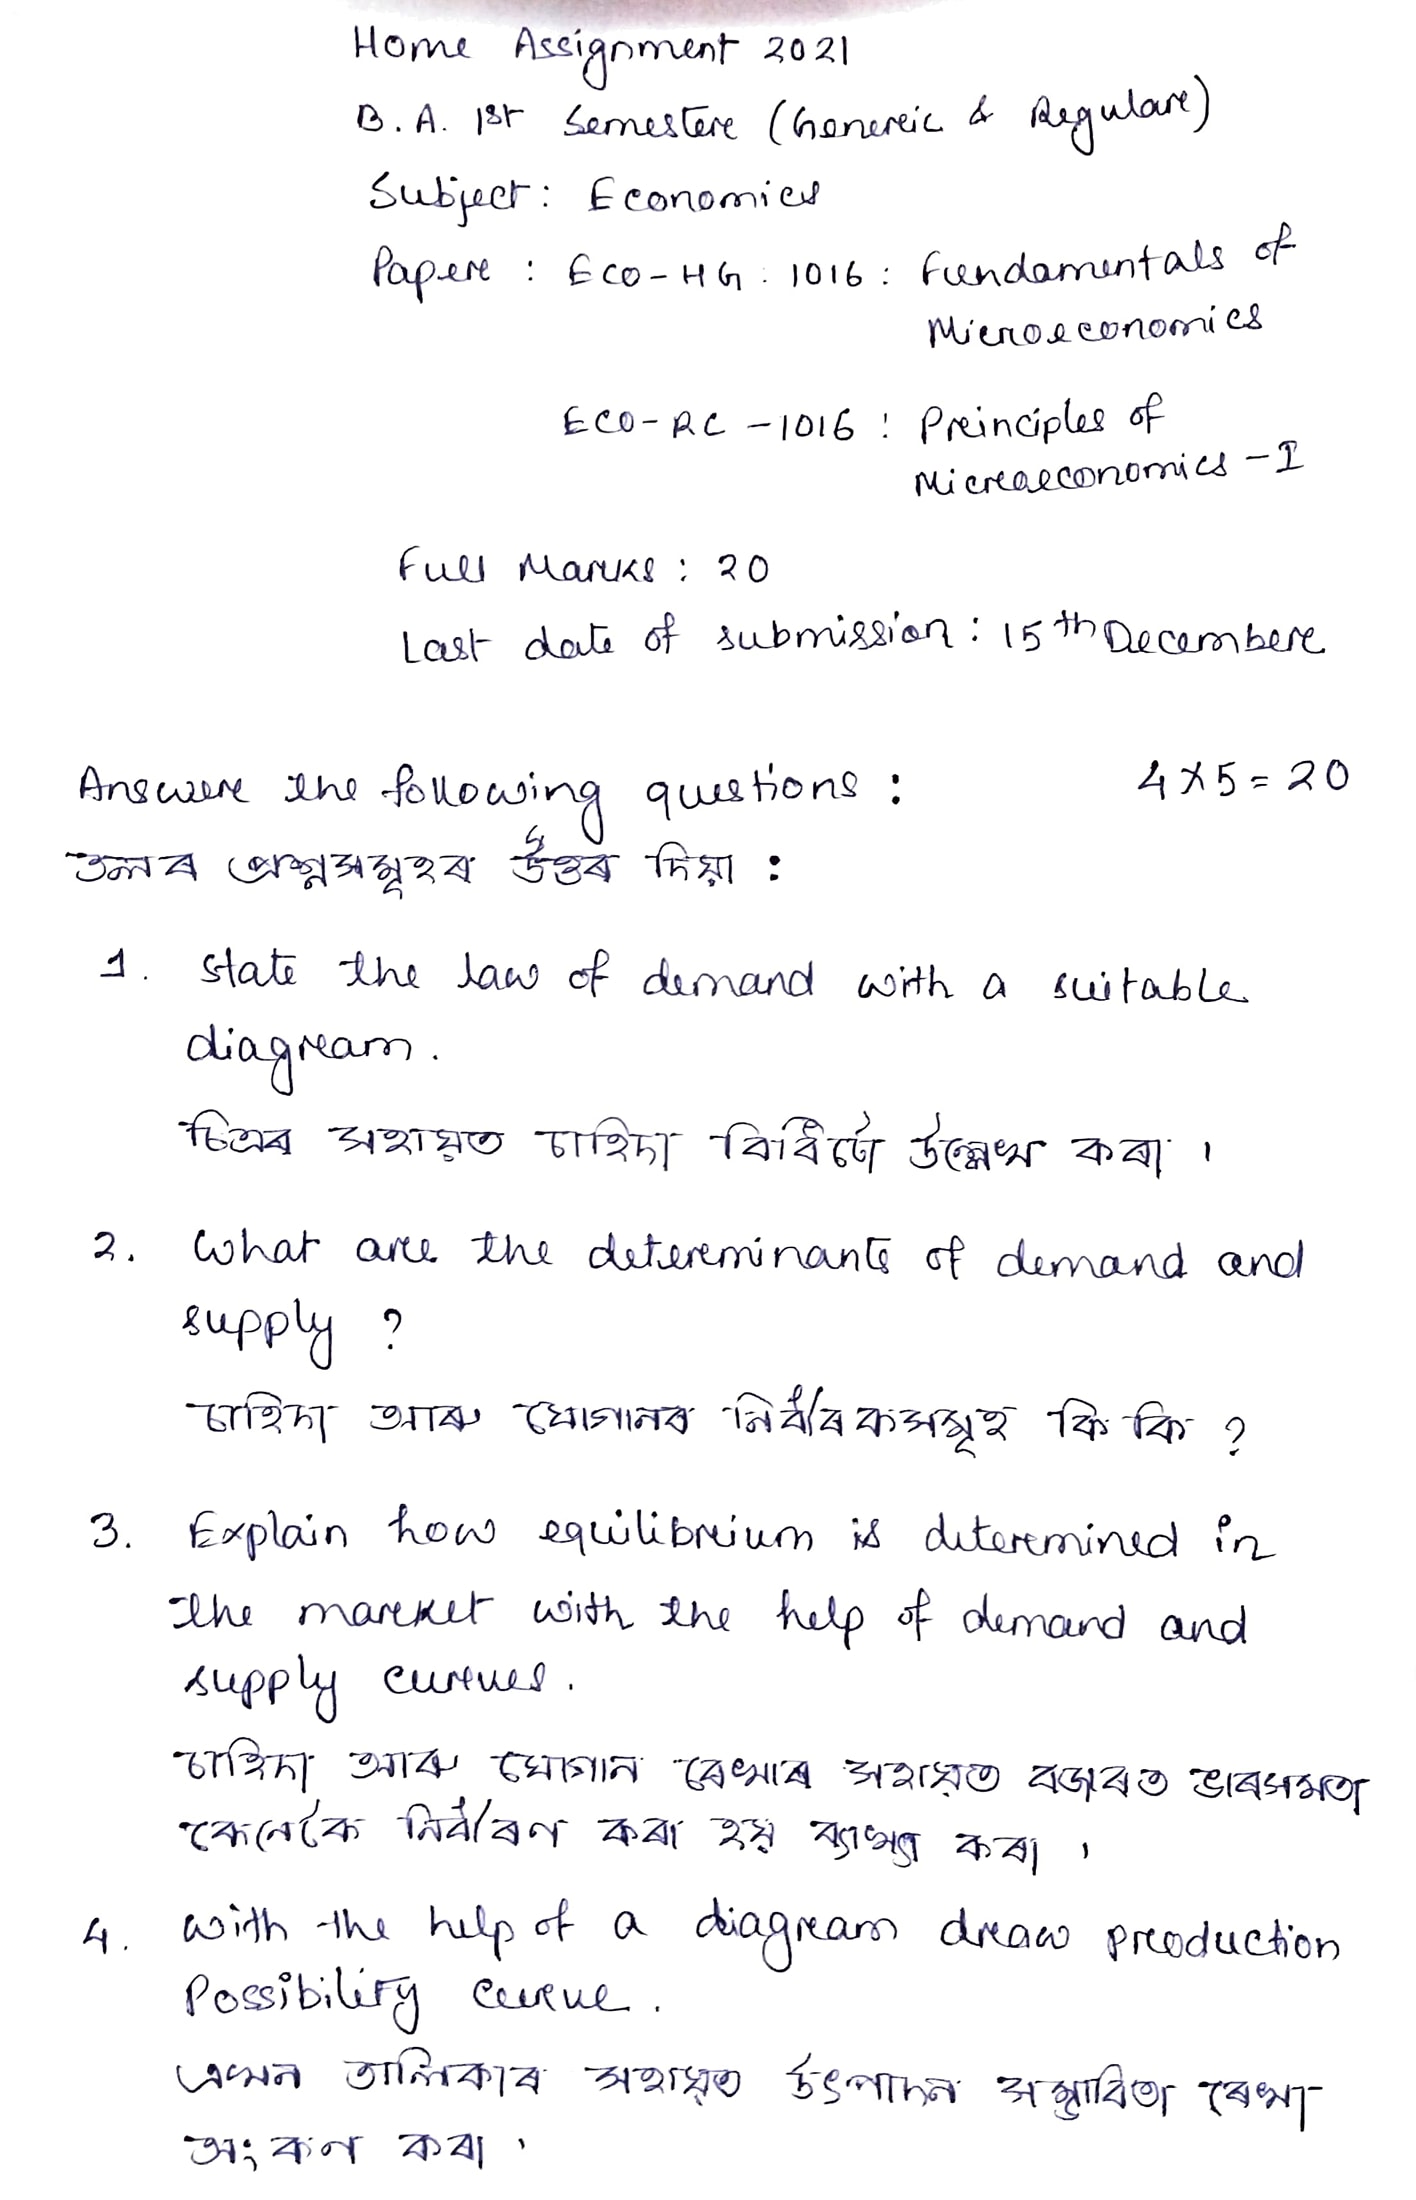 Home Assignment 2021
B.A. 1st Semester (Generic & Regular)
Subject: Economics
Paper : ECO-HG: 1016: Fundamentals of
Microeconomics
ECO-RC-1016: Principles of
Microeconomics-I
Full Marks: 20
Last date of submission: 15th December
Answer the following questions: 4×5=20
তলৰ প্ৰশ্নসমূহৰ উত্তৰ দিয়া:
1. State the law of demand with a suitable
diagram.
চিত্ৰৰ সহায়ত চাহিদা বিধিটো উল্লেখ কৰা।
2. What are the determinants of demand and
supply?
চাহিদা আৰু যোগানৰ নিৰ্ধাৰকসমূহ কি কি?
3. Explain how equilibrium is determined in
the market with the help of demand and
supply curves.
চাহিদা আৰু যোগান ৰেখাৰ সহায়ত বজাৰত ভাৰসমতা
কেনেকৈ নিৰ্ধাৰণ কৰা হয় ব্যাখ্যা কৰা।
4. With the help of a diagram draw production
Possibility curve.
এখন তালিকাৰ সহায়ত উৎপাদন সম্ভাবিতা ৰেখা
অংকণ কৰা।